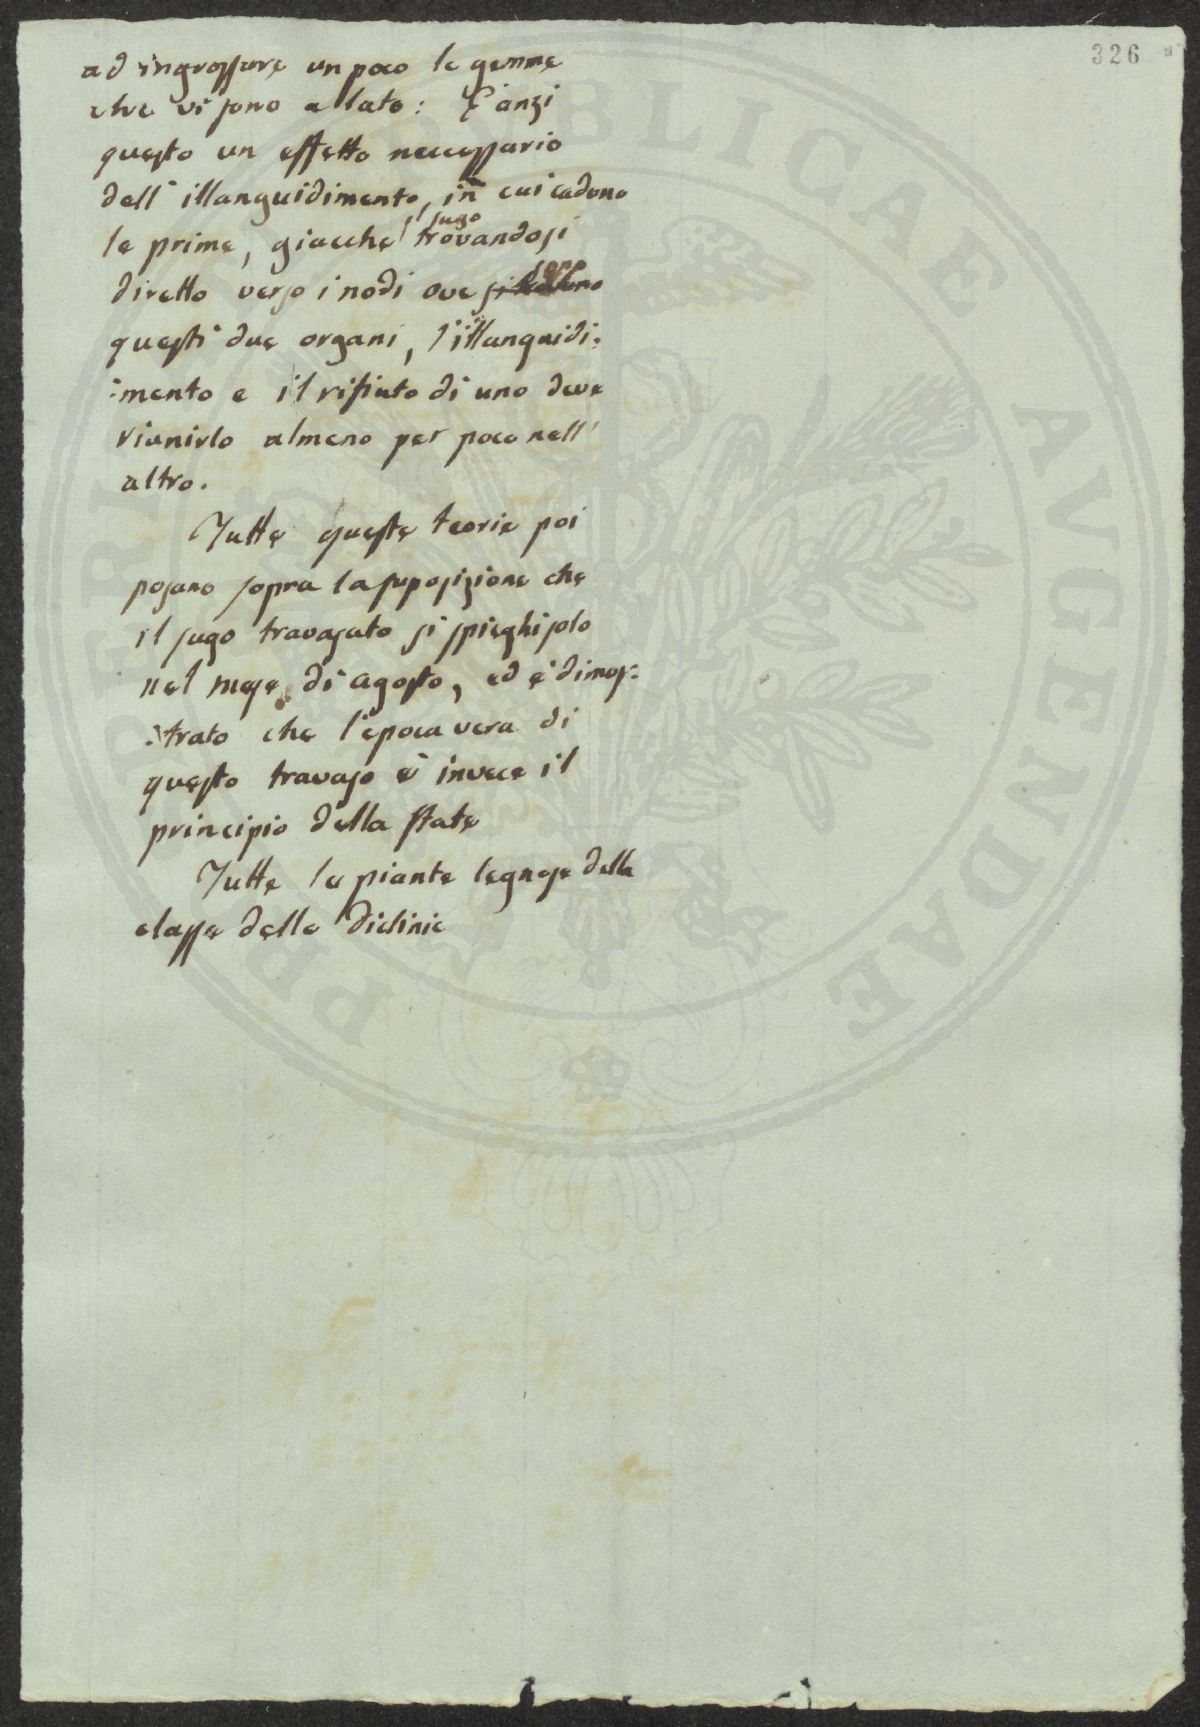 326
ad ingrossare un poco le gemme
che vi sono a lato: È anzi
questo un effetto neccessario
dell' illanguidimento, in cui cadono
le prime, giacche l' sugo trovandosi
diretto verso i nodi ove sono
questi due organi, l'illanguidi:
:mento e il rifiuto di uno deve
riunirlo almeno per poco nell'
altro.
Tutte queste teorie poi
posano sopra la supposizione che
il sugo travasato si spieghi solo
nel mese di agosto, ed è dimos:
:trato che l'epoca vera di
questo travaso è invece il
principio della state
Tutte le piante legnose della
classe delle diclinie
PRO PUBLICAE AVGENDAE